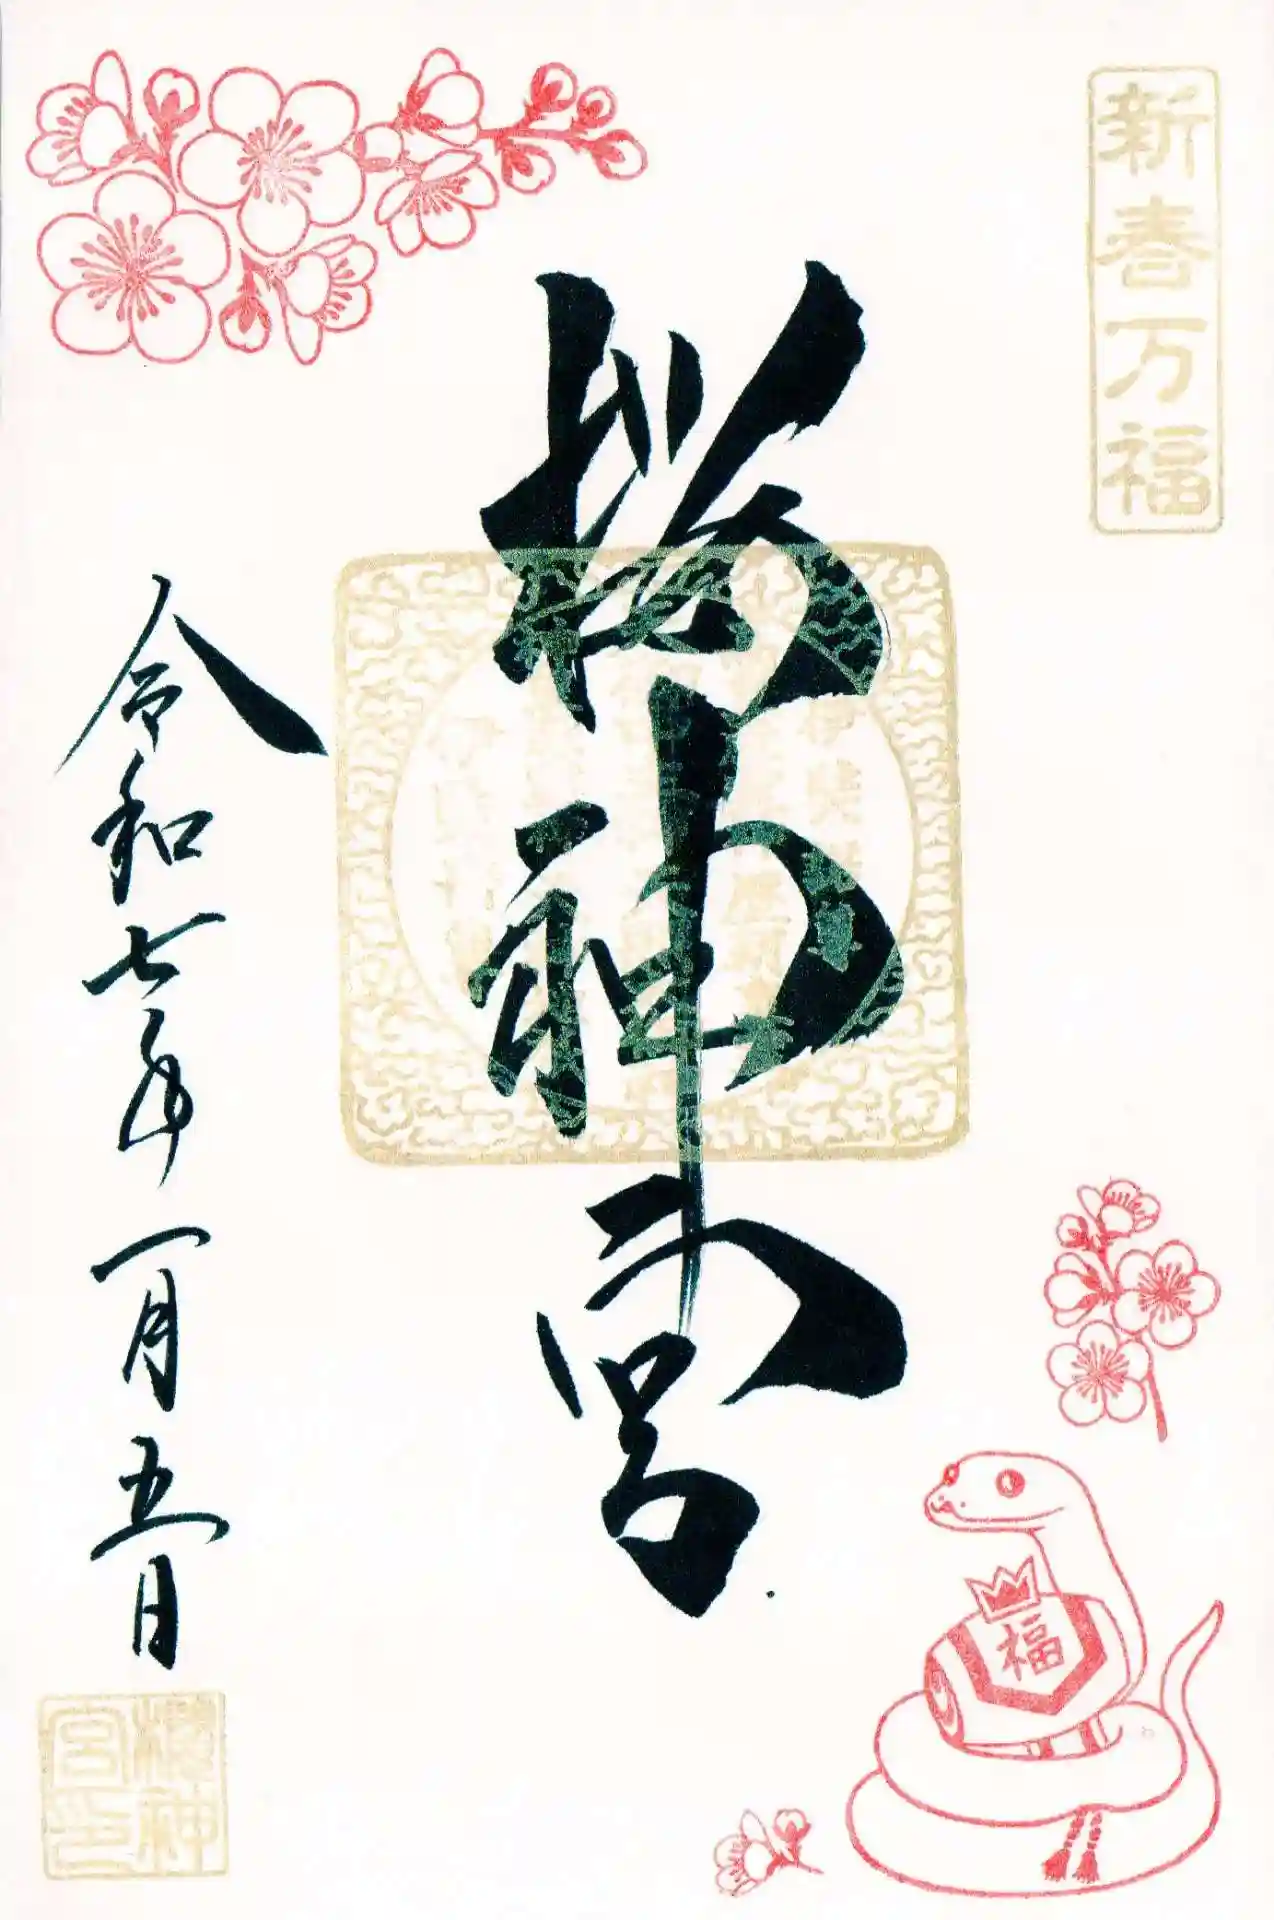 新春万福
櫻神宮
令和七年一月五日
福
櫻神
宮印